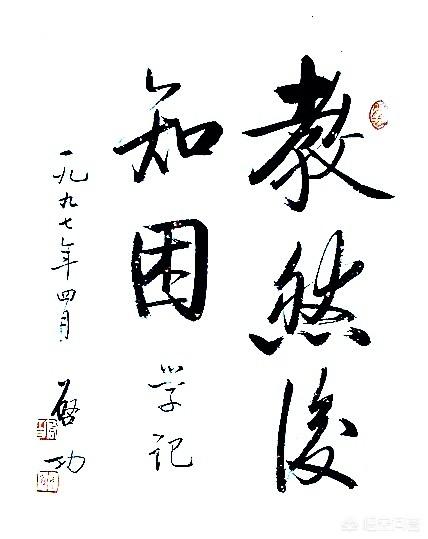 教然後
知困 学记
一九九七年四月
启功